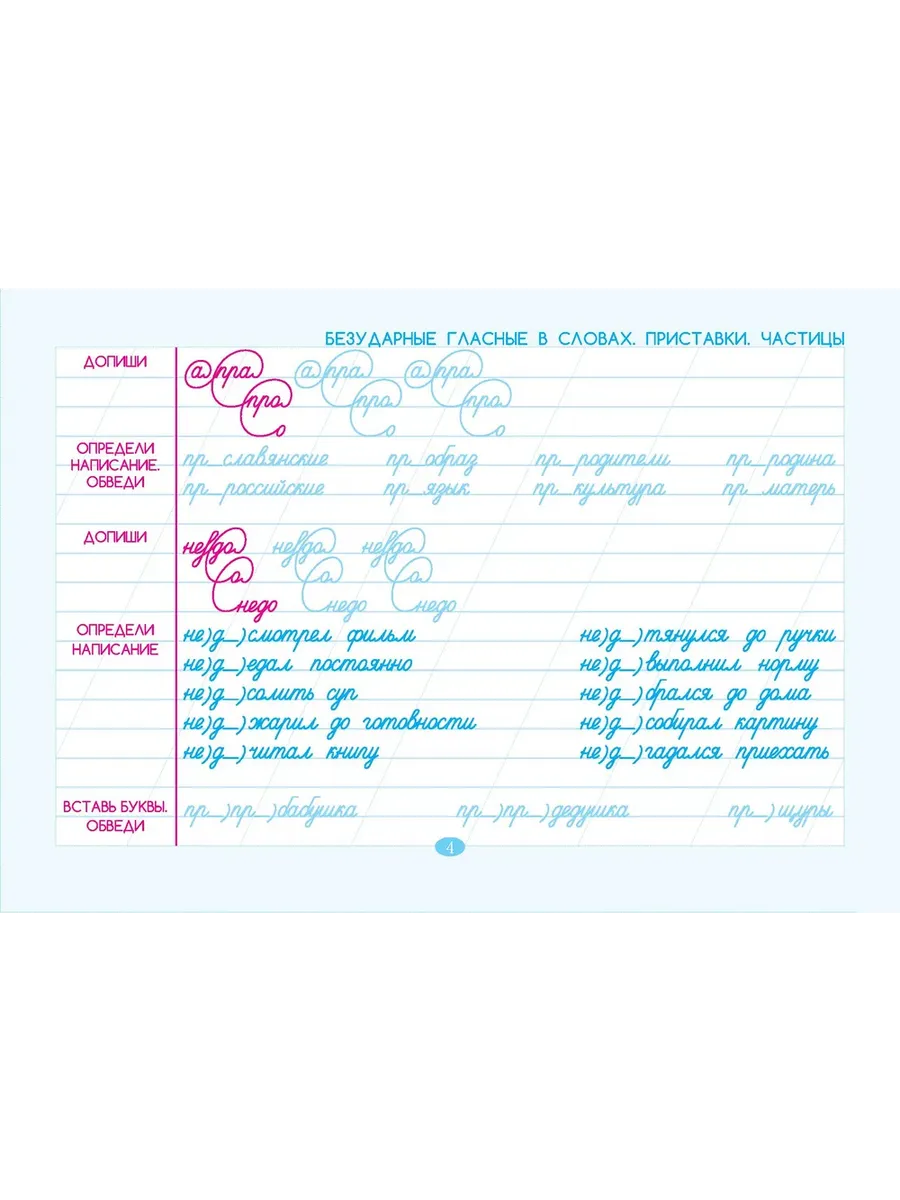 БЕЗУДАРНЫЕ ГЛАСНЫЕ В СЛОВАХ. ПРИСТАВКИ. ЧАСТИЦЫ
ДОПИШИ
а пра а пра а пра
про про про
о о о
ОПРЕДЕЛИ НАПИСАНИЕ. ОБВЕДИ
пр_славянские пр_образ пр_родители пр_родина
пр_российские пр_язык пр_культура пр_матерь
ДОПИШИ
не до не до не до
о о о
недо недо недо
ОПРЕДЕЛИ НАПИСАНИЕ
не)д_)смотрел фильм не)д_)тянулся до ручки
не)д_)едал постоянно не)д_)выполнил норму
не)д_)солить суп не)д_)брался до дома
не)д_)жарил до готовности не)д_)собирал картину
не)д_)читал книгу не)д_)гадался приехать
ВСТАВЬ БУКВЫ. ОБВЕДИ
пр_)пр_)бабушка пр_)пр_)дедушка пр_)щуры
4